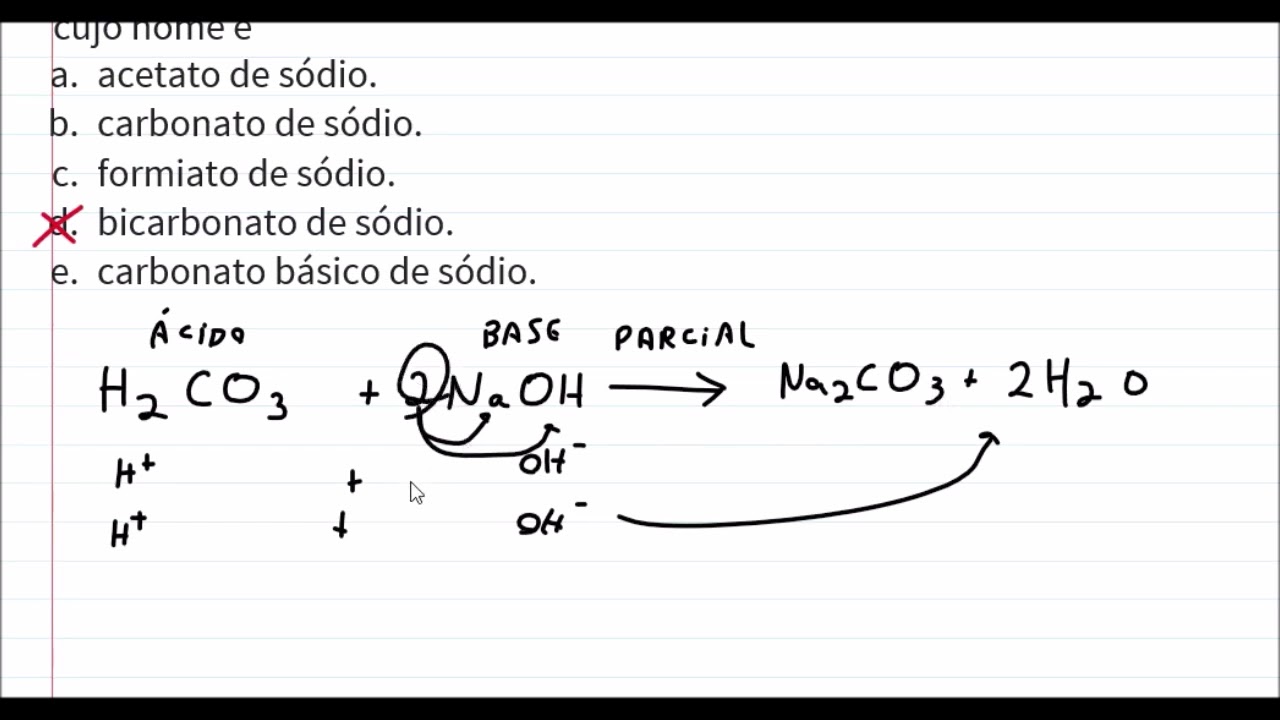 cujo nome é
a. acetato de sódio.
b. carbonato de sódio.
c. formiato de sódio.
d. bicarbonato de sódio.
e. carbonato básico de sódio.
ÁCIDO BASE PARCIAL
H2CO3 + 2NaOH → Na2CO3 + 2H2O
H+ + OH-
H+ + OH-